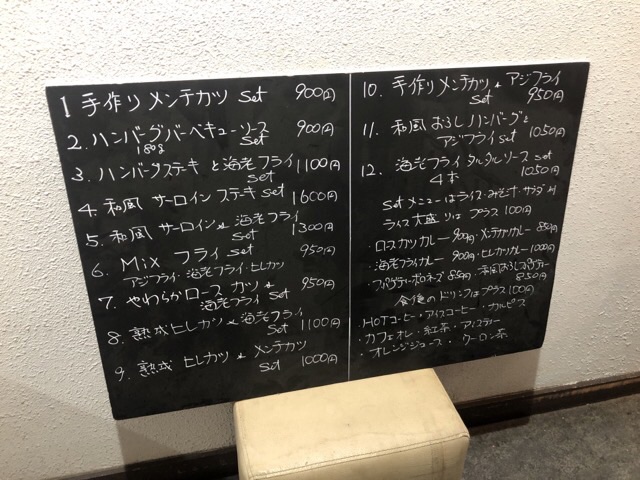 1 手作りメンチカツ set 900円
2. ハンバーグバーベキューソース 900円
180g set
3. ハンバーグステーキと海老フライ 1100円
set
4. 和風 サーロインステーキ set 1600円
5. 和風 サーロインと海老フライ 1300円
set
6. Mix フライ set 950円
アジフライ・海老フライ・ヒレカツ
7. やわらかロース カツと 950円
海老フライ set
8. 熟成ヒレカツと海老フライ
set 1100円
9. 熟成 ヒレカツ と メンチカツ
set 1000円
10. 手作りメンチカツとアジフライ
set 950円
11. 和風おろしハンバーグと
アジフライ set 1050円
12. 海老フライタルタルソース set
4本 1050円
set メニューはライス・みそ汁・サラダ付
ライス大盛りは プラス100円
・ロースカツカレー 900円・メンチカツカレー 850円
・海老フライカレー 900円・ヒレカツカレー 1000円
・スパゲティーボロネーズ 850円・和風おろしスパゲティー
850円
食後のドリンクはプラス100円
・HOTコーヒー・アイスコーヒー・カルピス
・カフェオレ・紅茶・アイスティー
・オレンジジュース・ウーロン茶